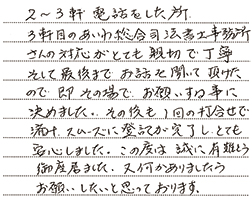 2～3軒 電話をした所
3軒目のあいわ総合司法書士事務所
さんの対応がとても親切で丁寧
そして最後まで お話を聞いて頂けた
ので 即その場で お願いする事に
決めました。その後も1回の打合せで
流れ スムーズに登記が完了し とても
安心しました。この度は 誠に有難とう
御座居ました。又何かありましたら
お願いしたいと思っております。